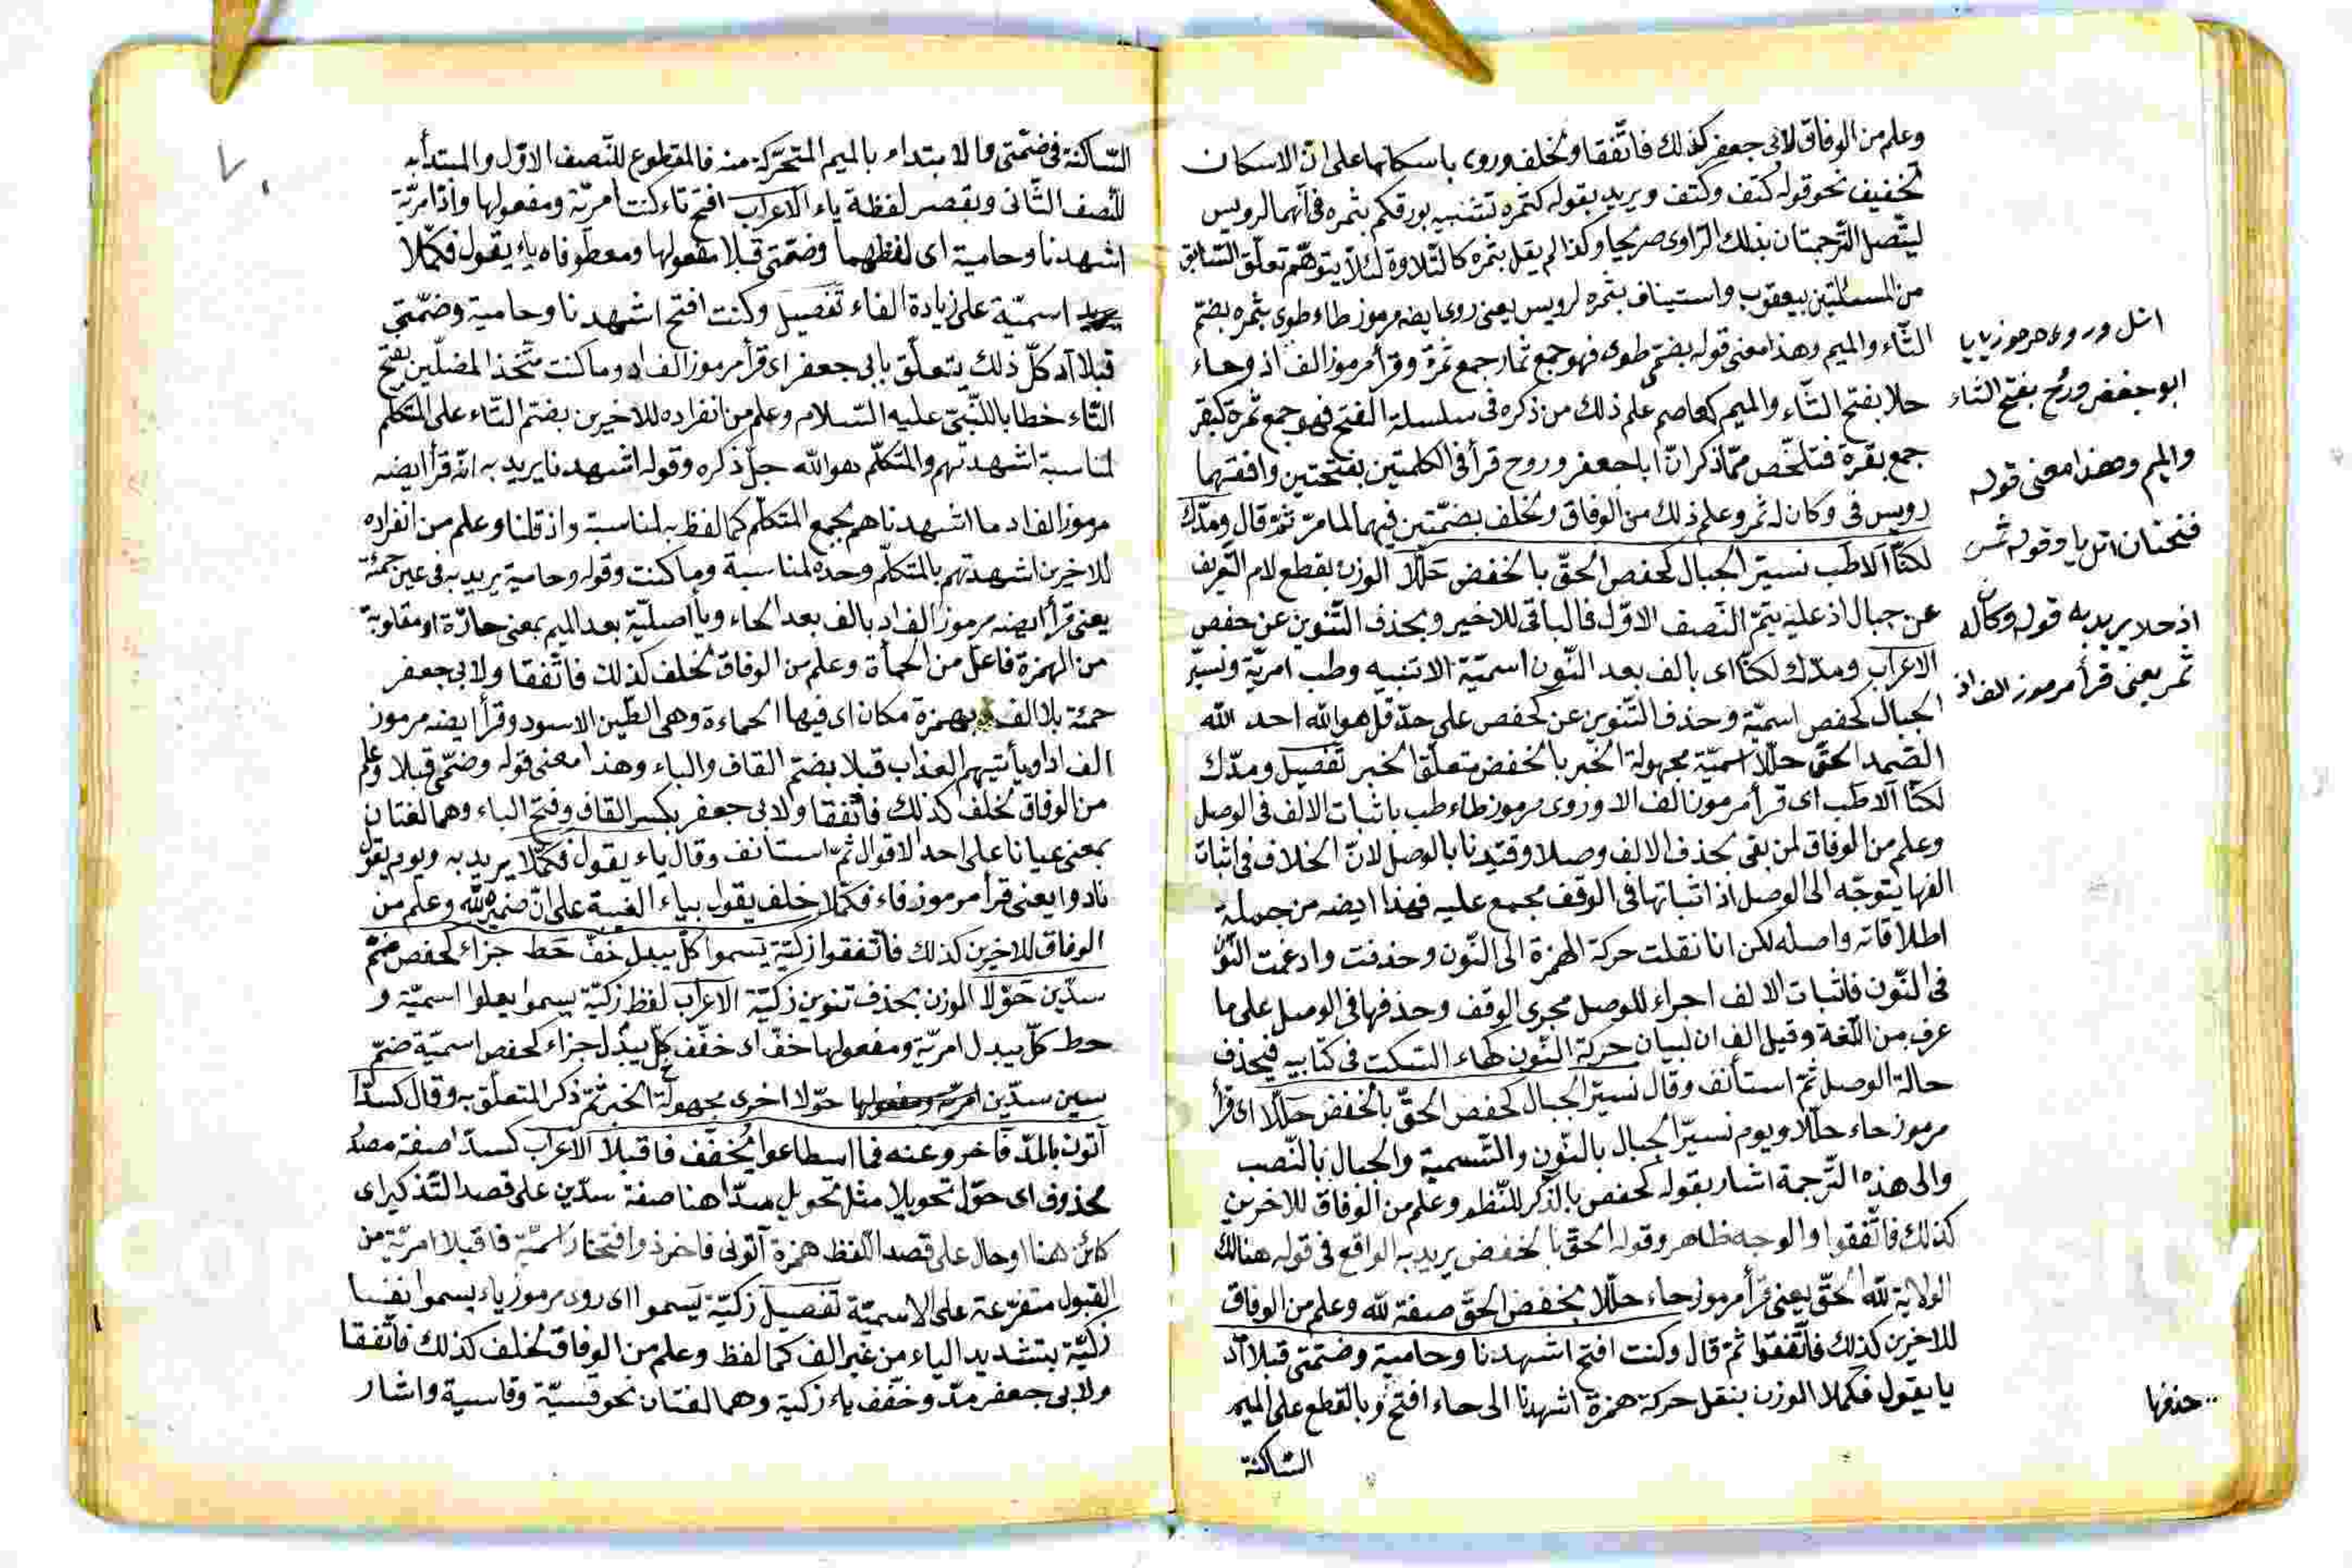 وعلم من الوفاق لابى جعفر كذلك فاتّفقا ولخلف وروى باسكانها على انّ الاسكان
تخفيف نحو قوله كتف وكتف ويريد بقوله كثمره تشبيه بورقكم بثمره فى انّهما لرويس
ليتّصل التّرجمتان بذلك الرّاوى صريحا وكذا لم يقل بثمره كالتّلاوة لئلّا يتوهّم تعلّق السّابق
من المسئلتين بيعقوب واستيناف بثمره لرويس يعنى روى ايضه مرموز طاء طوى بثمره بضمّ
الثّاء والميم وهذا معنى قوله بضمّى طوى فهو جمع ثمار جمع ثمرة وقرأ مرموز الف اذ وحاء
حلا بفتح الثّاء والميم كعاصم علم ذلك من ذكره فى سلسلة الفتح فهو جمع ثمرة كبقر
جمع بقرة فتلخّص ممّا ذكر انّ ابا جعفر وروح قرأ فى الكلمتين بفتحتين وافقهما
رويس فى وكان له ثمر وعلم ذلك من الوفاق ولخلف بضمّتين فيهما لما مرّ ثمّ قال ومدّك
لكنّا الا طب نسيّر الجبال كحفص الحقّ بالخفض حلّلا الوزن بقطع لام التّعريف
عن جبال اذ عليه يتمّ النّصف الاوّل فالباقى للاخير وبحذف التّنوين عن حفص
الاعراب ومدّك لكنّا اى بالف بعد النّون اسميّة الا تنبيه وطب امريّة ونسيّر
الجبال كحفص اسميّة وحذف التّنوين عن كحفص على حدّ قل هو الله احد الله
الصّمد الحقّ حلّلا اسميّة مجهولة الخبر بالخفض متعلّق الخبر تفصيل ومدّك
لكنّا الا طب اى قرأ مرموز الف الا وروى مرموز طاء طب باثبات الالف فى الوصل
وعلم من الوفاق لمن بقى بحذف الالف وصلا وقيّدنا بالوصل لانّ الخلاف فى اثبات
الفها يتوجّه الى الوصل اذ اثباتها فى الوقف مجمع عليه فهذا ايضه من جملة
اطلاقاته واصله لكن انا نقلت حركة الهمزة الى النّون وحذفت وادغمت النّون
فى النّون فاثبات الالف اجراء للوصل مجرى الوقف وحذفها فى الوصل على ما
عرف من اللّغة وقيل الف ان لبيان حركة النّون كهاء السّكت فى كتابيه فيحذف
حالة الوصل ثمّ استأنف وقال نسيّر الجبال كحفص الحقّ بالخفض حلّلا اى قرأ
مرموز حاء حلّلا ويوم نسيّر الجبال بالنّون والتّسمية والجبال بالنّصب
والى هذه التّرجمة اشار بقوله كحفص بالذكر للنّظم وعلم من الوفاق للاخرين
كذلك فاتّفقوا والوجه ظاهر وقوله الحقّ بالخفض يريد به الواقع فى قوله هنالك
الولاية لله الحقّ يعنى قرأ مرموز حاء حلّلا بخفض الحقّ صفة لله وعلم من الوفاق
للاخرين كذلك فاتّفقوا ثمّ قال وكنت افتح اشهدنا وحامية وضمّتى قبلا اد
يا يقول فكمّلا الوزن بنقل حركة همزة اشهدنا الى حاء افتح وبالقطع على الميم
السّاكنة
اتل وروى مرموز يا يا
ابو جعفر وروح بفتح الثاء
والميم وهذا معنى قوله
فتحتان اتل يا وقوله ثمر
اذ حلا يريد به قوله وكان له
ثمر يعنى قرأ مرموز الف اذ
حذفها
السّاكنة فى ضمّتى والابتداء بالميم المتحرّكة منه فالمقطوع للنّصف الاوّل والمبتدأ به
للنّصف الثّانى وبقصر لفظة ياء الاعراب افتح تاء كنت امريّة ومفعولها واذا امريّة
اشهدنا وحامية اى لفظهما وضمّتى قبلا مفعولها ومعطوفاه ياء يقول فكمّلا
اسميّة على زيادة الفاء تفصيل وكنت افتح اشهدنا وحامية وضمّتى
قبلا اد كلّ ذلك يتعلّق بابى جعفر اى قرأ مرموز الف اد وما كنت متّخذ المضلّين بفتح
التّاء خطابا للنّبىّ عليه السّلام وعلم من انفراده للاخيرين بضمّ التّاء على المتكلّم
لمناسبة اشهدتهم والمتكلّم هو الله جلّ ذكره وقوله اشهدنا يريد به انّه قرأ ايضه
مرموز الف اد ما اشهدناهم بجمع المتكلّم كما لفظ به لمناسبة واذ قلنا وعلم من انفراده
للاخرين اشهدتهم بالمتكلّم وحده لمناسبة وما كنت وقوله وحامية يريد به فى عين حمئة
يعنى قرأ ايضه مرموز الف اد بالف بعد الحاء ويا اصليّة بعد الميم بمعنى حارّة او مقلوبة
من الهمزة فاعل من الحمأة وعلم من الوفاق لخلف كذلك فاتّفقا ولابى جعفر
حمئة بلا الف بهمزة مكان اى فيها الحماءة وهى الطّين الاسود وقرأ ايضه مرموز
الف اد او يأتيهم العذاب قبلا بضمّ القاف والباء وهذا معنى قوله وضمّتى قبلا وعلم
من الوفاق لخلف كذلك فاتّفقا ولابى جعفر بكسر القاف وفتح الباء وهما لغتان
بمعنى عيانا على احد الاقوال ثمّ استانف وقال ياء يقول فكمّلا يريد به ويوم يقول
نادوا يعنى قرأ مرموز فاء فكمّلا خلف يقول بياء الغيبة على انّ ضميره لله وعلم من
الوفاق للاخرين كذلك فاتّفقوا زكيّة يسموا كلّ يبدل خفّ حط جزاء كحفص ضمّ
سدّين حوّلا الوزن بحذف تنوين زكيّة الاعراب لفظ زكيّة يسموا يعلوا اسميّة و
حط كلّ يبدل امريّة ومفعولها خفّ اى خفّف كلّ يبدل جزاء كحفص اسميّة ضمّ
سين سدّين حوّلا اخرى مجهولة الخبر ثمّ ذكر المتعلّق به وقال كسدّا
آتون بالمدّ فاخر وعنه فما اسطاعوا يخفّف فاقبلا الاعراب كسدّا صفة مصدر
محذوف اى حوّل تحويلا مثل تحويل سدّا هنا صفة سدّين على قصد التّذكير اى
كائن هنا او حال على قصد اللّفظ همزة آتونى فاقبلا امريّة من
القبول متفرّعة على الاسميّة تفصيل زكيّة يسموا اى روى مرموز ياء يسموا نفسا
زكيّة بتشديد الياء من غير الف كما لفظ وعلم من الوفاق لخلف كذلك فاتّفقا
ولابى جعفر مدّ وخفّف ياء زكية وهما لغتان نحو قسيّة وقاسية واشار